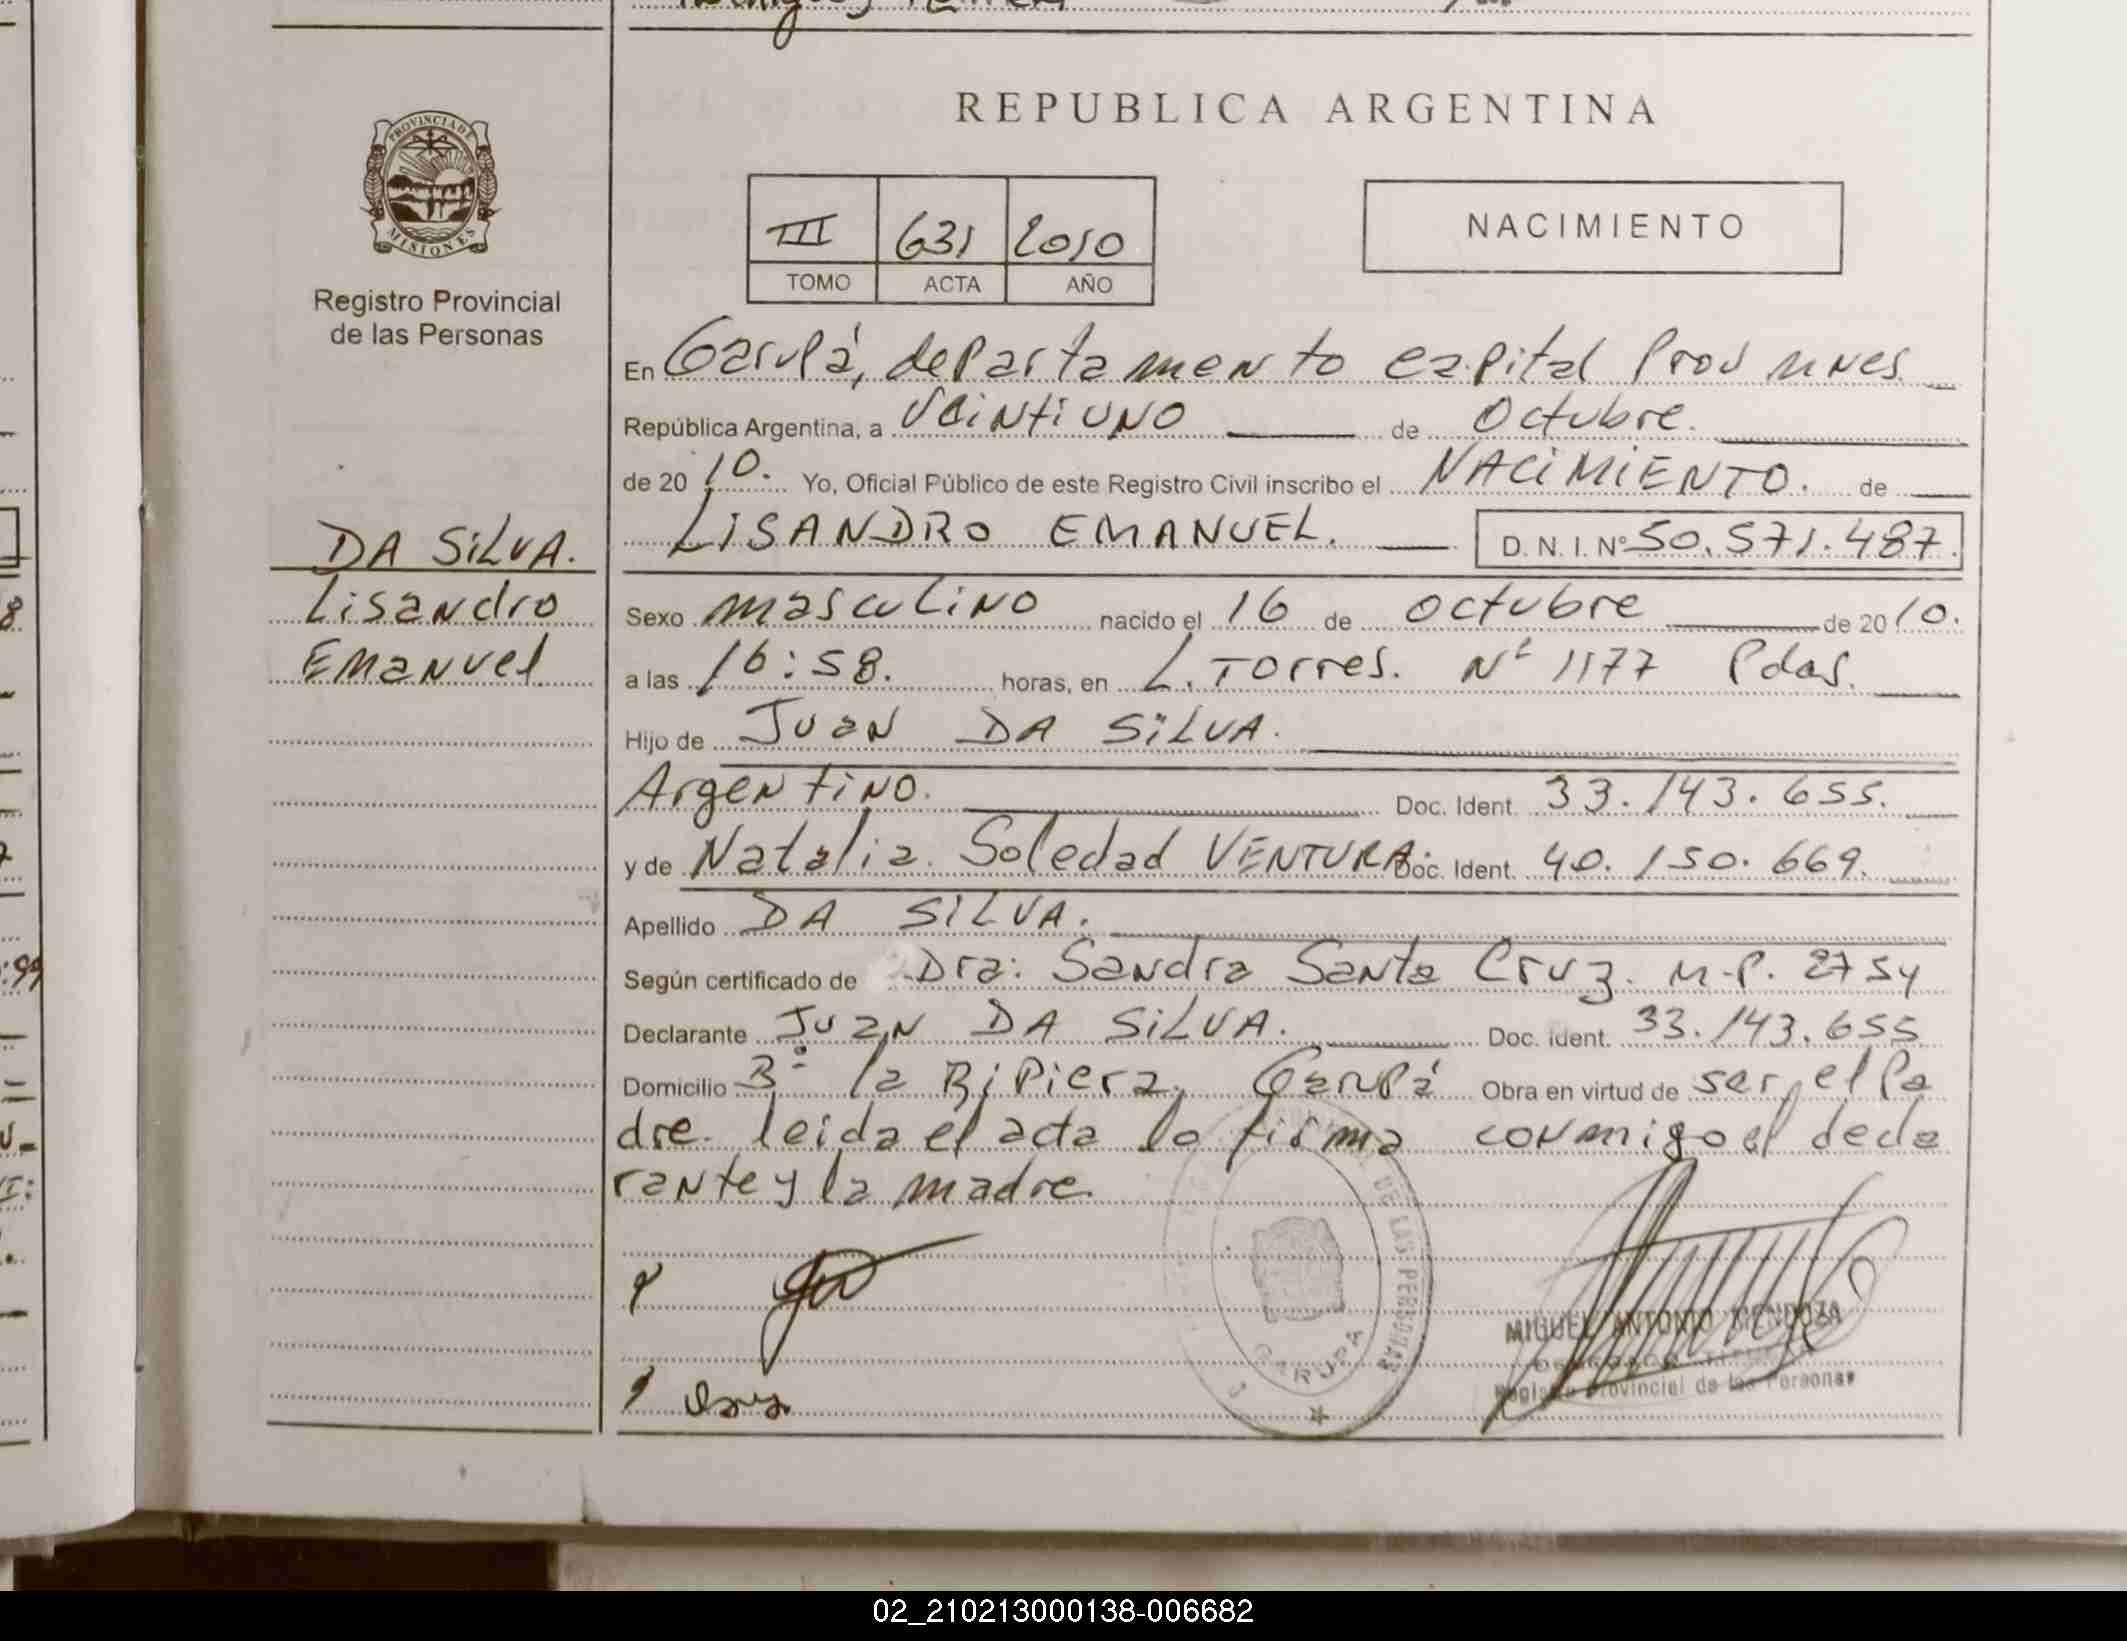 REPUBLICA ARGENTINA
PROVINCIA DE
MISIONES
Registro Provincial
de las Personas
III 631 2010
TOMO ACTA AÑO
NACIMIENTO
En Garupá, departamento capital Prov mnes
República Argentina, a Veintiuno de Octubre.
de 2010. Yo, Oficial Público de este Registro Civil inscribo el NACIMIENTO. de
LISANDRO EMANUEL. D. N. I. Nº 50.571.487.
DA SILVA.
Lisandro
Emanuel
Sexo masculino nacido el 16 de octubre de 2010.
a las 16:58. horas, en L. Torres. Nº 1177 Pdas.
Hijo de Juan DA SILVA.
Argentino. Doc. Ident. 33.143.655.
y de Natalia Soledad VENTURA. Doc. Ident. 40.150.669.
Apellido DA SILVA.
Según certificado de Dra: Sandra Santa Cruz. M.P. 2754
Declarante Juan DA SILVA. Doc. ident. 33.143.655
Domicilio Bº la Ripiera. Garupá Obra en virtud de ser el Pa
dre. leida el acta la firma conmigo el decla
rante y la madre.
DE LAS PERSONAS
GARUPA
MIGUEL ANTONIO MENDOZA
Registro Provincial de las Personas
02_210213000138-006682